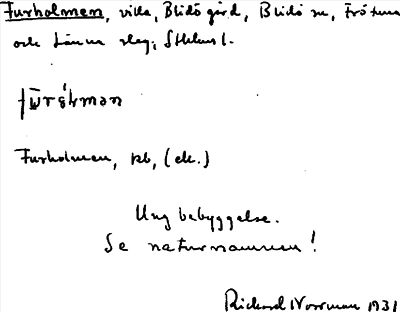 Furholmen, villa, Blidö gård, Blidö sn, Frötuna
och Länna skg, Sthlms l.
Furholmen, kb, (ek.)
Ung bebyggelse.
Se naturnamnen!
Rickard Norrman 1931